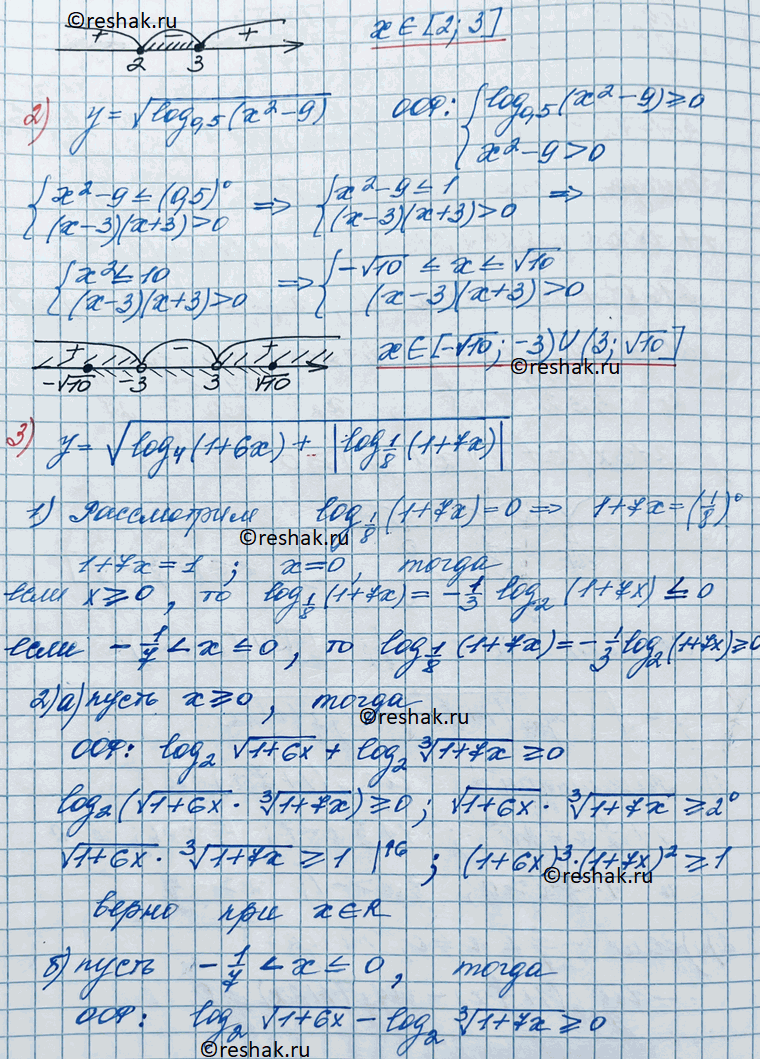 ©reshak.ru
+ − + x ∈ [2; 3]
2 3
2) y = √(log₀,₅(x² − 9)) ООФ: { log₀,₅(x² − 9) ≥ 0
x² − 9 > 0
{ x² − 9 ≤ (0,5)⁰ ⇒ { x² − 9 ≤ 1 ⇒
(x−3)(x+3) > 0 (x−3)(x+3) > 0
{ x² ≤ 10 ⇒ { −√10 ≤ x ≤ √10
(x−3)(x+3) > 0 (x−3)(x+3) > 0
+ − + x ∈ [−√10; −3) ∪ (3; √10]
−√10 −3 3 √10 ©reshak.ru
3) y = √(log₄(1+6x) + |log_{1/8}(1+7x)|)
1) Рассмотрим log_{1/8}(1+7x) = 0 ⇒ 1+7x = (1/8)⁰
©reshak.ru
1+7x = 1 ; x = 0, тогда
если x ≥ 0, то log_{1/8}(1+7x) = −1/3 log₂(1+7x) ≤ 0
если −1/7 < x ≤ 0, то log_{1/8}(1+7x) = −1/3 log₂(1+7x) ≥ 0
2) а) пусть x ≥ 0, тогда
©reshak.ru
ООФ: log₂ √(1+6x) + log₂ ∛(1+7x) ≥ 0
log₂(√(1+6x) · ∛(1+7x)) ≥ 0 ; √(1+6x) · ∛(1+7x) ≥ 2⁰
√(1+6x) · ∛(1+7x) ≥ 1 |↑6 ; (1+6x)³·(1+7x)² ≥ 1
©reshak.ru
верно при x ∈ R
б) пусть −1/7 < x ≤ 0, тогда
ООФ: log₂ √(1+6x) − log₂ ∛(1+7x) ≥ 0
©reshak.ru